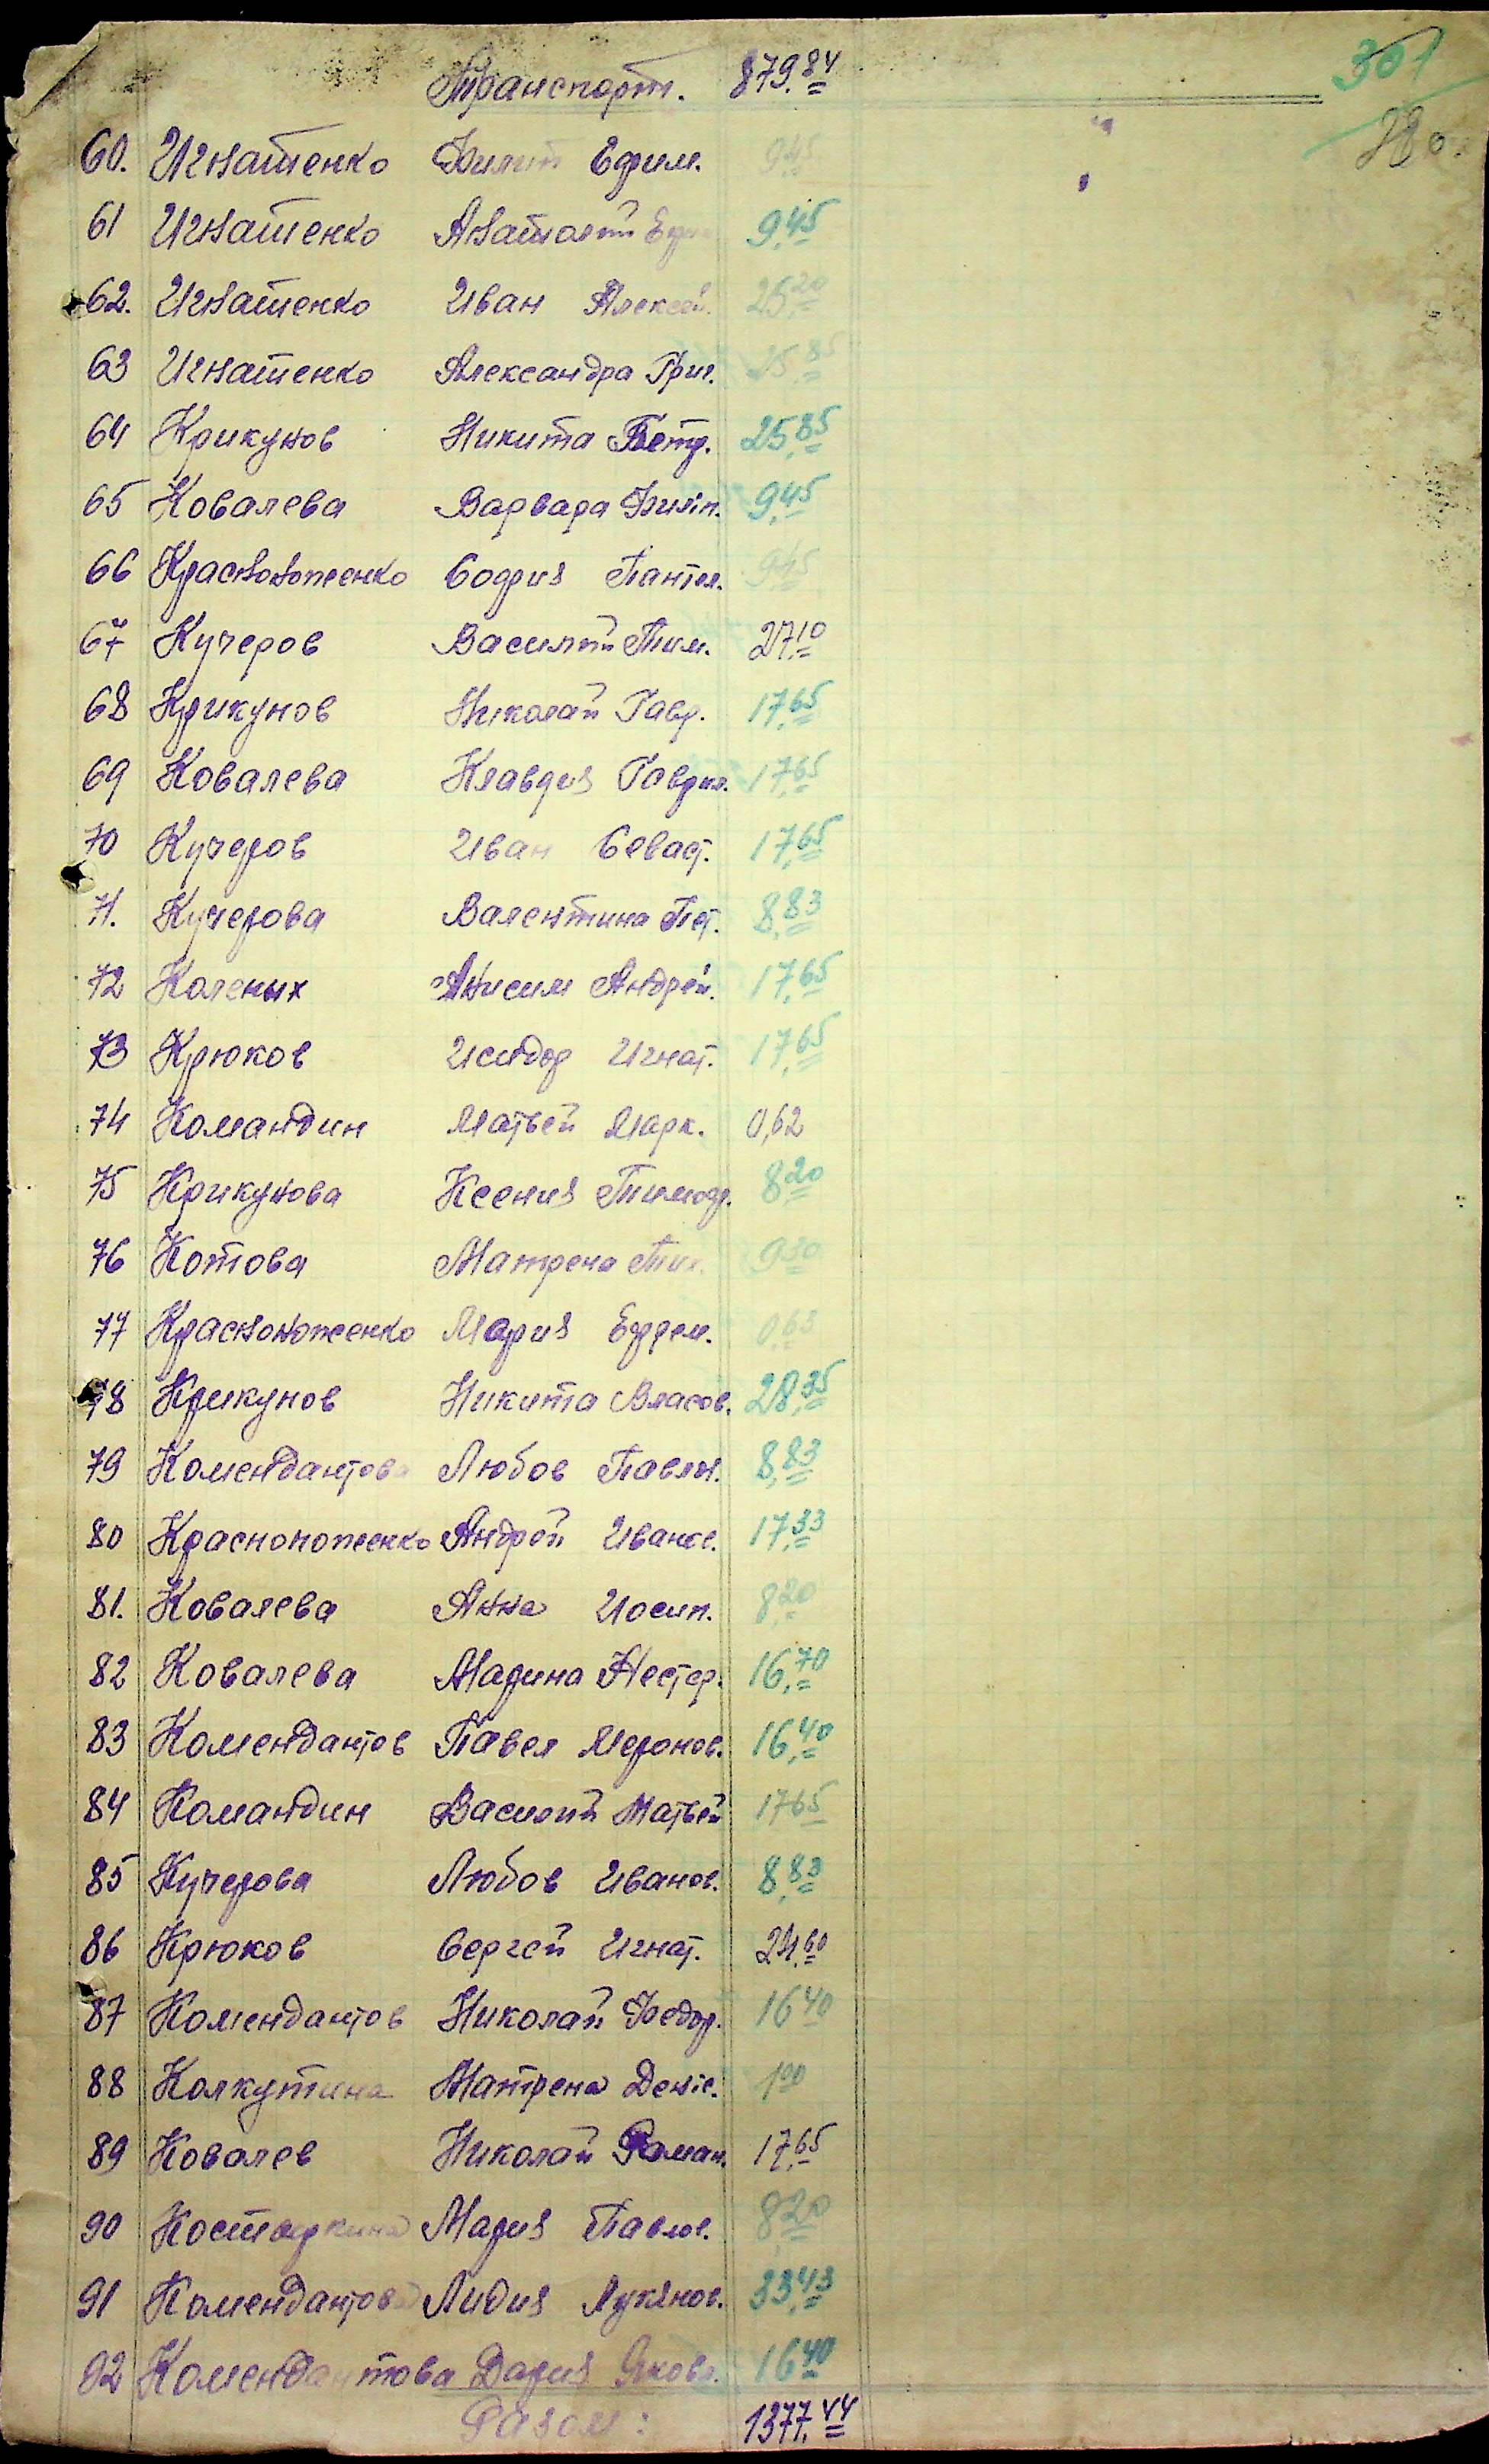 301
Транспорт. 879.84
60. Игнатенко Филип Ефим. 9,45
61 Игнатенко Анатолий Ефим 9,45
62. Игнатенко Иван Алексей. 25,20
63 Игнатенко Александра Григ. 25,85
64 Крикунов Никита Петр. 25,85
65 Ковалева Варвара Филіп. 9,45
66 Красноноженко София Пантел. 9,45
67 Кучеров Василий Тим. 27,10
68 Крикунов Николай Гавр. 17,65
69 Ковалева Клавдия Гаврил. 17,65
70 Кучеров Иван Севаст. 17,65
71. Кучерова Валентина Пет. 8,83
72 Коленых Анисим Андрей. 17,65
73 Крюков Исидор Игнат. 17,65
74 Командин Матвей Марк. 0,62
75 Крикунова Ксения Тимоф. 8,20
76 Котова Матрена Тих. 9,30
77 Красноноженко Мария Ефрем. 0,63
78 Крикунов Никита Власов. 28,35
79 Комендантова Любов Павлов. 8,83
80 Красноноженко Андрей Иванов. 17,33
81. Ковалева Анна Иосип. 8,20
82 Ковалева Марина Нестер. 16,70
83 Комендантов Павел Меронов. 16,40
84 Командин Василий Матвей 17,65
85 Кучерова Любов Иванов. 8,83
86 Крюков Сергей Игнат. 24,60
87 Комендантов Николай Федор. 16,40
88 Колкутина Матрена Деніс. 1,00
89 Ковалев Николай Роман. 17,65
90 Костыркина Мария Павлов. 8,20
91 Комендантова Лидия Лукянов. 33,43
92 Комендантова Дария Яковл. 16,40
Разом: 1377.44